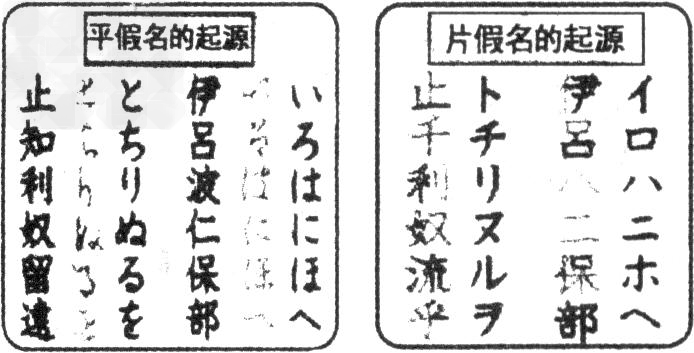 平假名的起源
いろはにほへ
いろはにほへ
伊呂波仁保部
とちりぬるを
とちりぬるを
止知利奴留遠
片假名的起源
イロハニホヘ
伊呂八二保部
トチリヌルヲ
止千利奴流乎